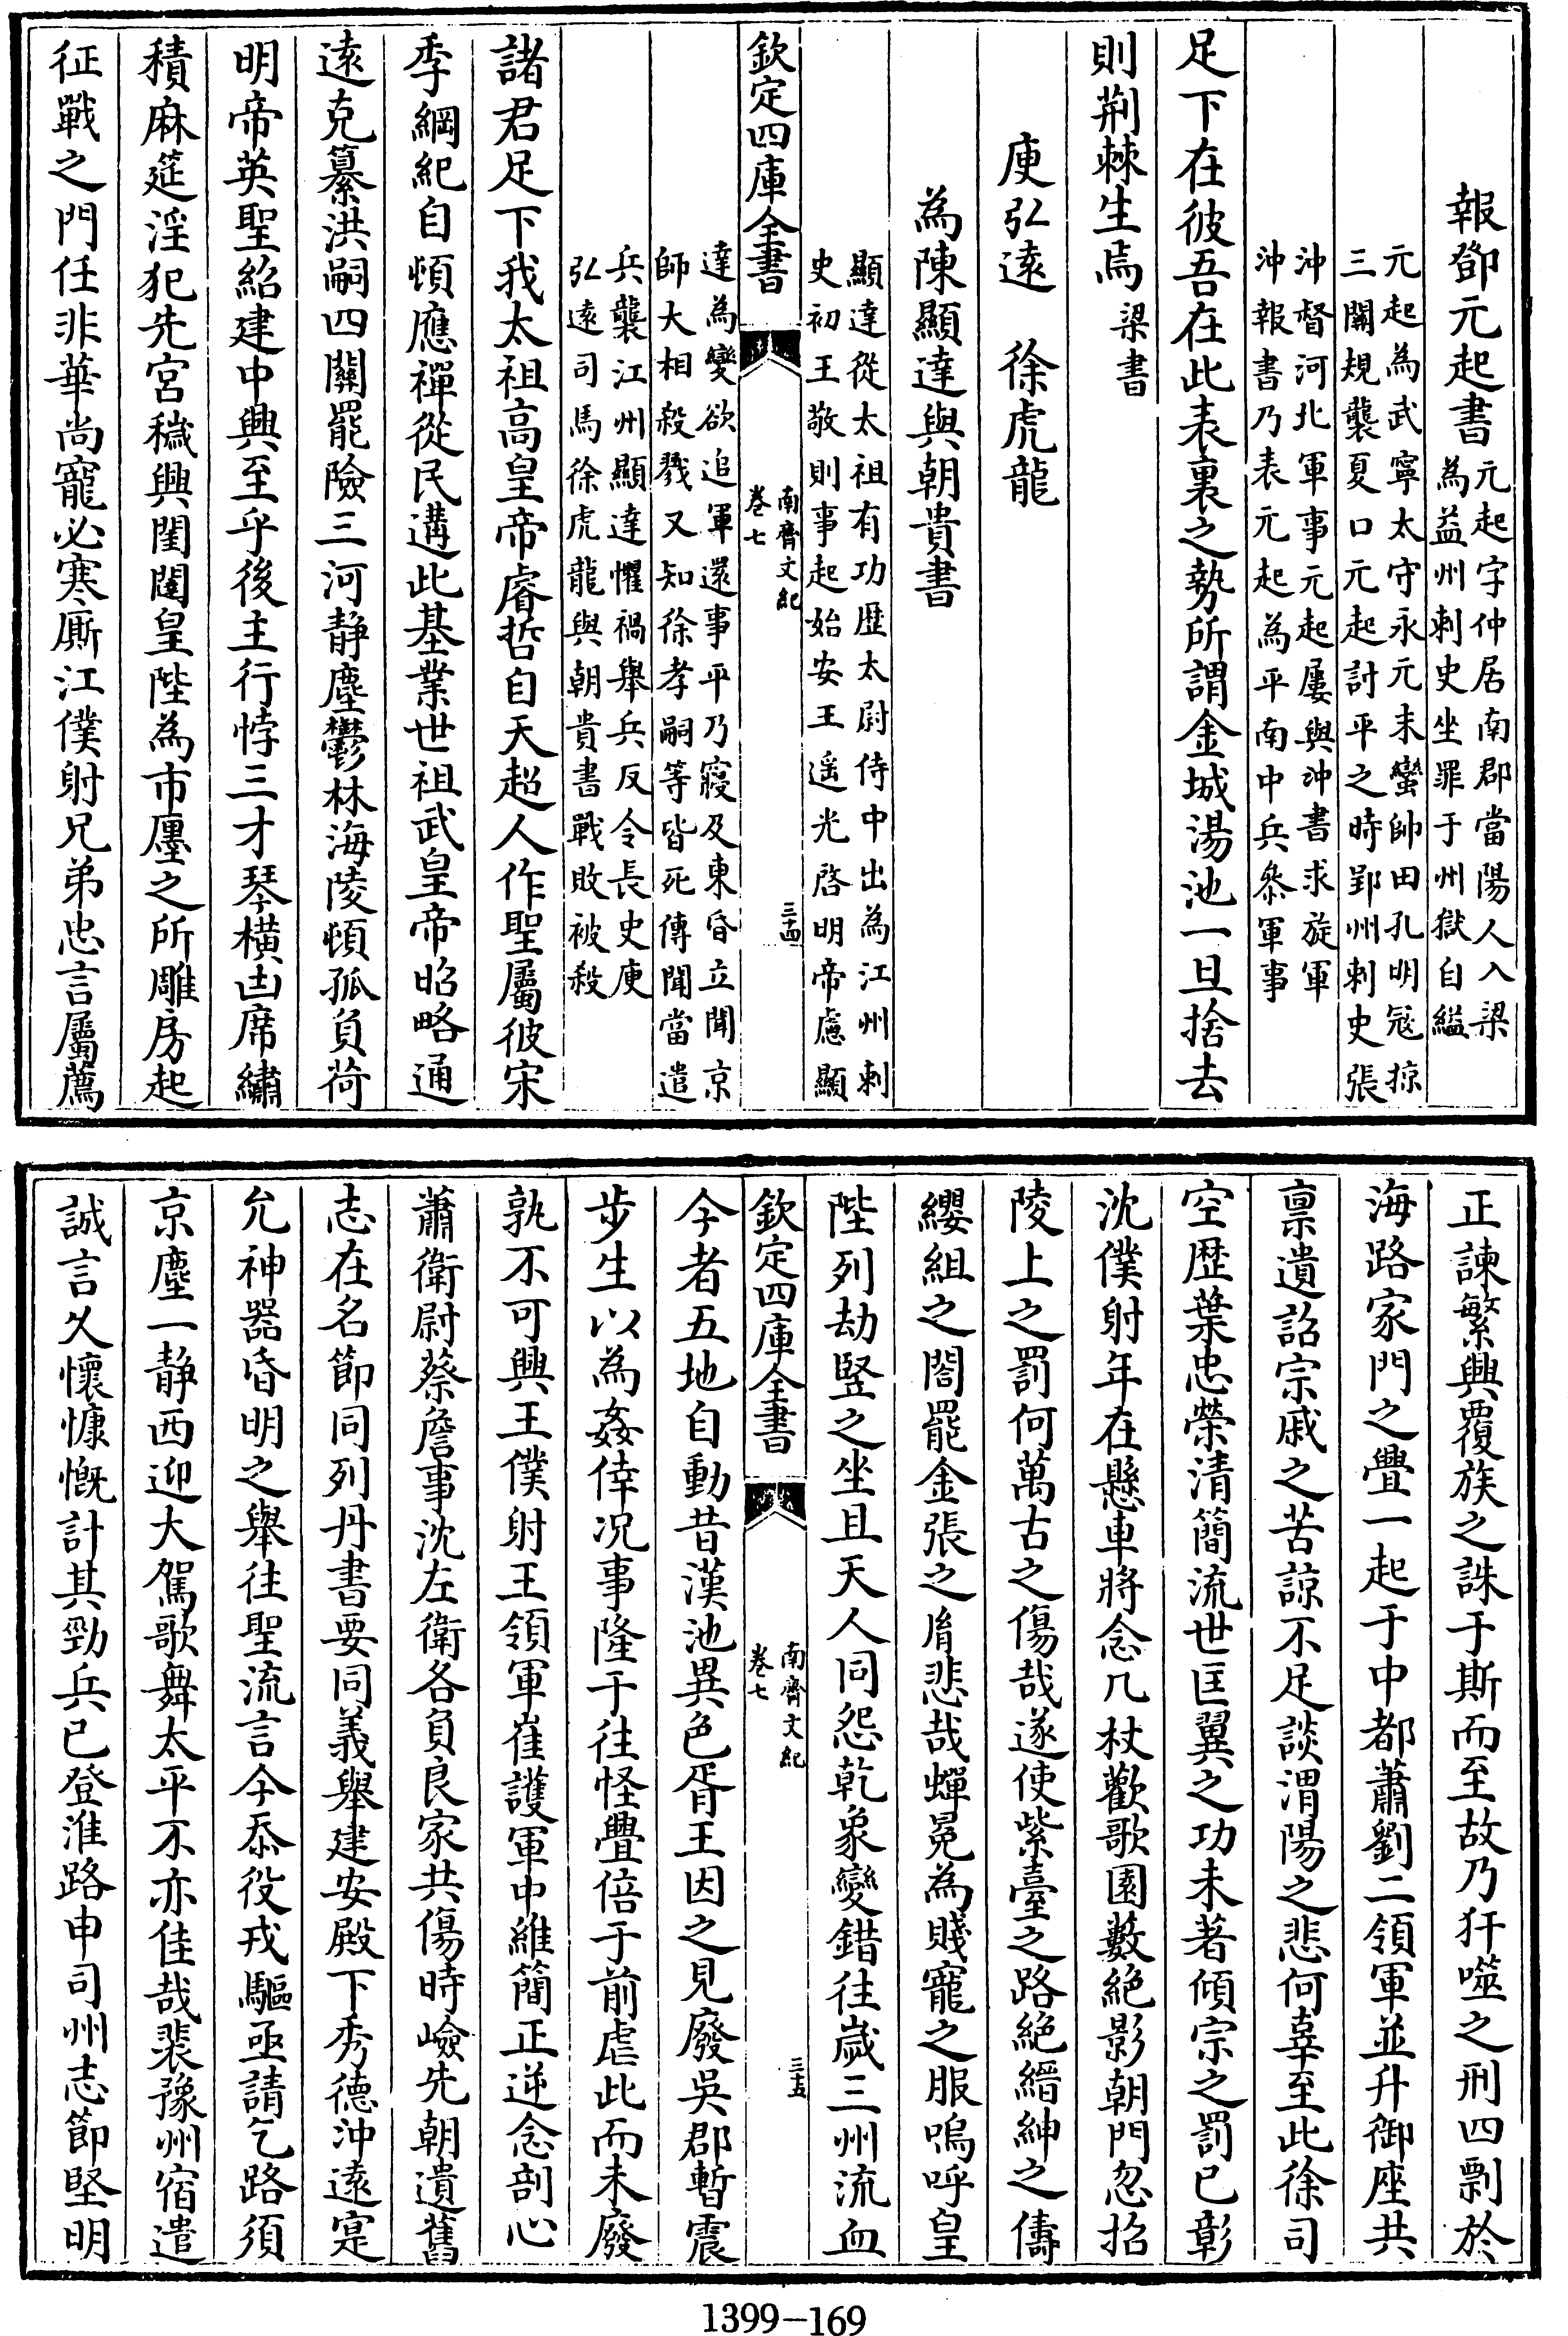 報鄧元起書元起字仲居南郡當陽人入梁為益州刺史坐罪于州獄自縊
元起為武寧太守永元末蠻帥田孔明冦掠三關規襲夏口元起討平之時郢州刺史張
沖督河北軍事元起屢與沖書求旋軍沖報書乃表元起為平南中兵叅軍事
足下在彼吾在此表裏之勢所謂金城湯池一旦捨去
則荆棘生焉梁書
庾弘遠　徐虎龍
為陳顯達與朝貴書
顯達從太祖有功歴太尉侍中出為江州刺史初王敬則事起始安王遥光啓明帝慮顯
欽定四庫全書　南齊文紀　卷七　三十四
達為變欲追軍還事平乃寢及東昏立聞京師大相殺戮又知徐孝嗣等皆死傳聞當遣
兵襲江州顯達懼禍舉兵反令長史庾弘遠司馬徐虎龍與朝貴書戰敗被殺
諸君足下我太祖高皇帝睿哲自天超人作聖屬彼宋
季綱紀自頓應禪從民遘此基業世祖武皇帝昭略通
遠克纂洪嗣四關罷險三河静塵鬱林海陵頓孤負荷
明帝英聖紹建中興至乎後主行悖三才琴横凷席繡
積麻筵淫犯先宫穢興閨闥皇陛為市廛之所雕房起
征戰之門任非華尚寵必寒厮江僕射兄弟忠言屬薦
正諫繁興覆族之誅于斯而至故乃犴噬之刑四剽於
海路家門之釁一起于中都蕭劉二領軍並升御座共
禀遺詔宗戚之苦諒不足談渭陽之悲何辜至此徐司
空歴葉忠榮清簡流世匡翼之功未著傾宗之罰已彰
沈僕射年在懸車將念几杖歡歌園藪絶影朝門忽招
陵上之罰何萬古之傷哉遂使紫臺之路絶縉紳之儔
纓組之閤罷金張之胤悲哉蟬冕為賤寵之服嗚呼皇
陛列劫豎之坐且天人同怨乾象變錯往嵗三州流血
欽定四庫全書　南齊文紀　卷七　三十五
今者五地自動昔漢池異色胥王因之見廢吳郡暫震
步生以為姦倖况事隆于往怪釁倍于前虐此而未廢
孰不可興王僕射王領軍崔護軍中維簡正逆念剖心
蕭衛尉蔡詹事沈左衛各負良家共傷時嶮先朝遺舊
志在名節同列丹書要同義舉建安殿下秀德沖遠寔
允神器昏明之舉往聖流言今忝役戎驅亟請乞路須
京塵一静西迎大駕歌舞太平不亦佳哉裴豫州宿遣
誠言久懷慷慨計其勁兵已登淮路申司州志節堅明
1399-169